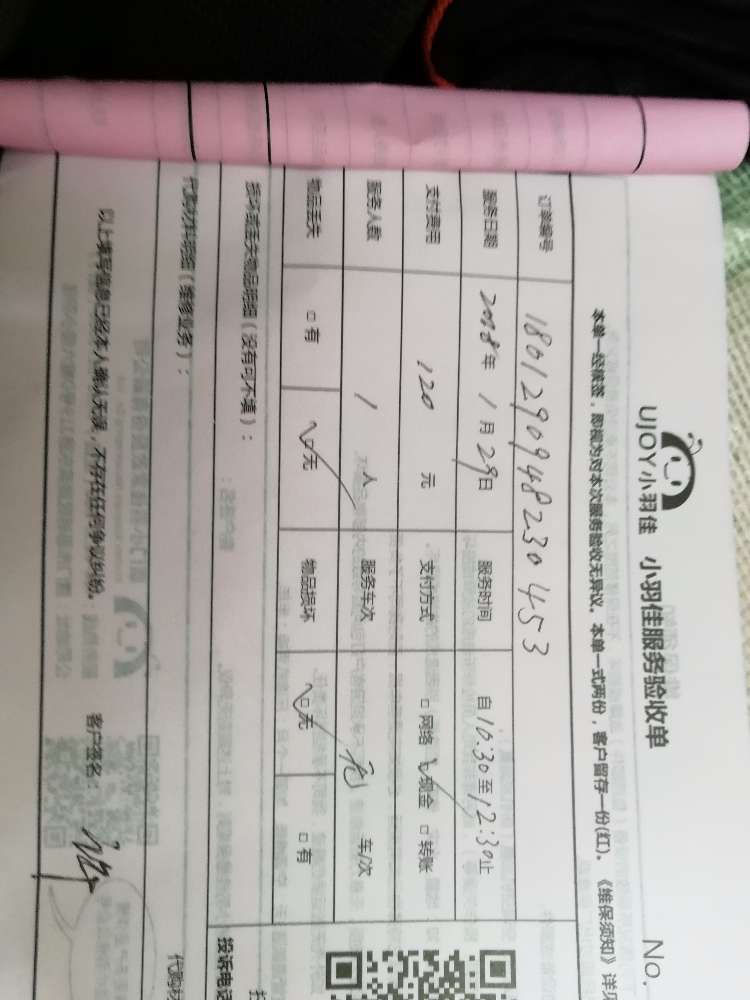 UJOY小羽佳 小羽佳服务验收单
No.
本单一经依签，即视为对本次服务验收无异议。本单一式两份，客户留存一份(红)。《维保须知》详见
订单编号 180129094823045 3
服务日期 2018年 1月 29日 服务时间 自10:30至12:30止
支付费用 120 元 支付方式 □ 网络 □ 现金 □ 转账
服务人数 1 人 服务车次 无 车/次
物品丢失 □ 有 □ 无 物品损坏 □ 无 □ 有
损坏或丢失物品明细（没有可不填）：
投诉电话
代购材料明细（维修业务）：
代购材
以上填写信息已经本人确认无误，不存在任何争议纠纷。 客户签名：